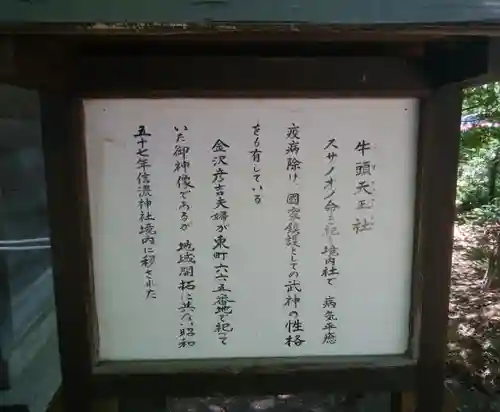 牛頭天王社
スサノオノ命を祀し境内社で 病気平癒
疫病除け、国家鎮護としての武神の性格
をも有している
金沢彦吉夫婦が東町六六五番地で祀って
いた御神像であるが 地域開拓に共ない昭和
五十七年信濃神社境内に移された